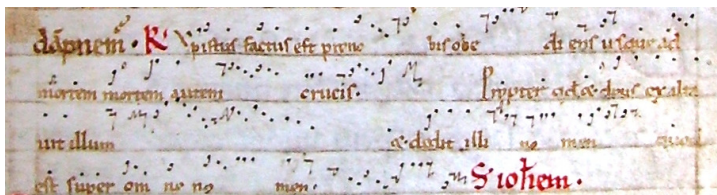 dãpnem̃. R̃ Xpistus factus est pro no bis obe di ens usque ad
mortem mortem autem crucis. Propter qd & deus exalta
uit illum & dedit illi no men quod
est super om ne no men. S ioħem.